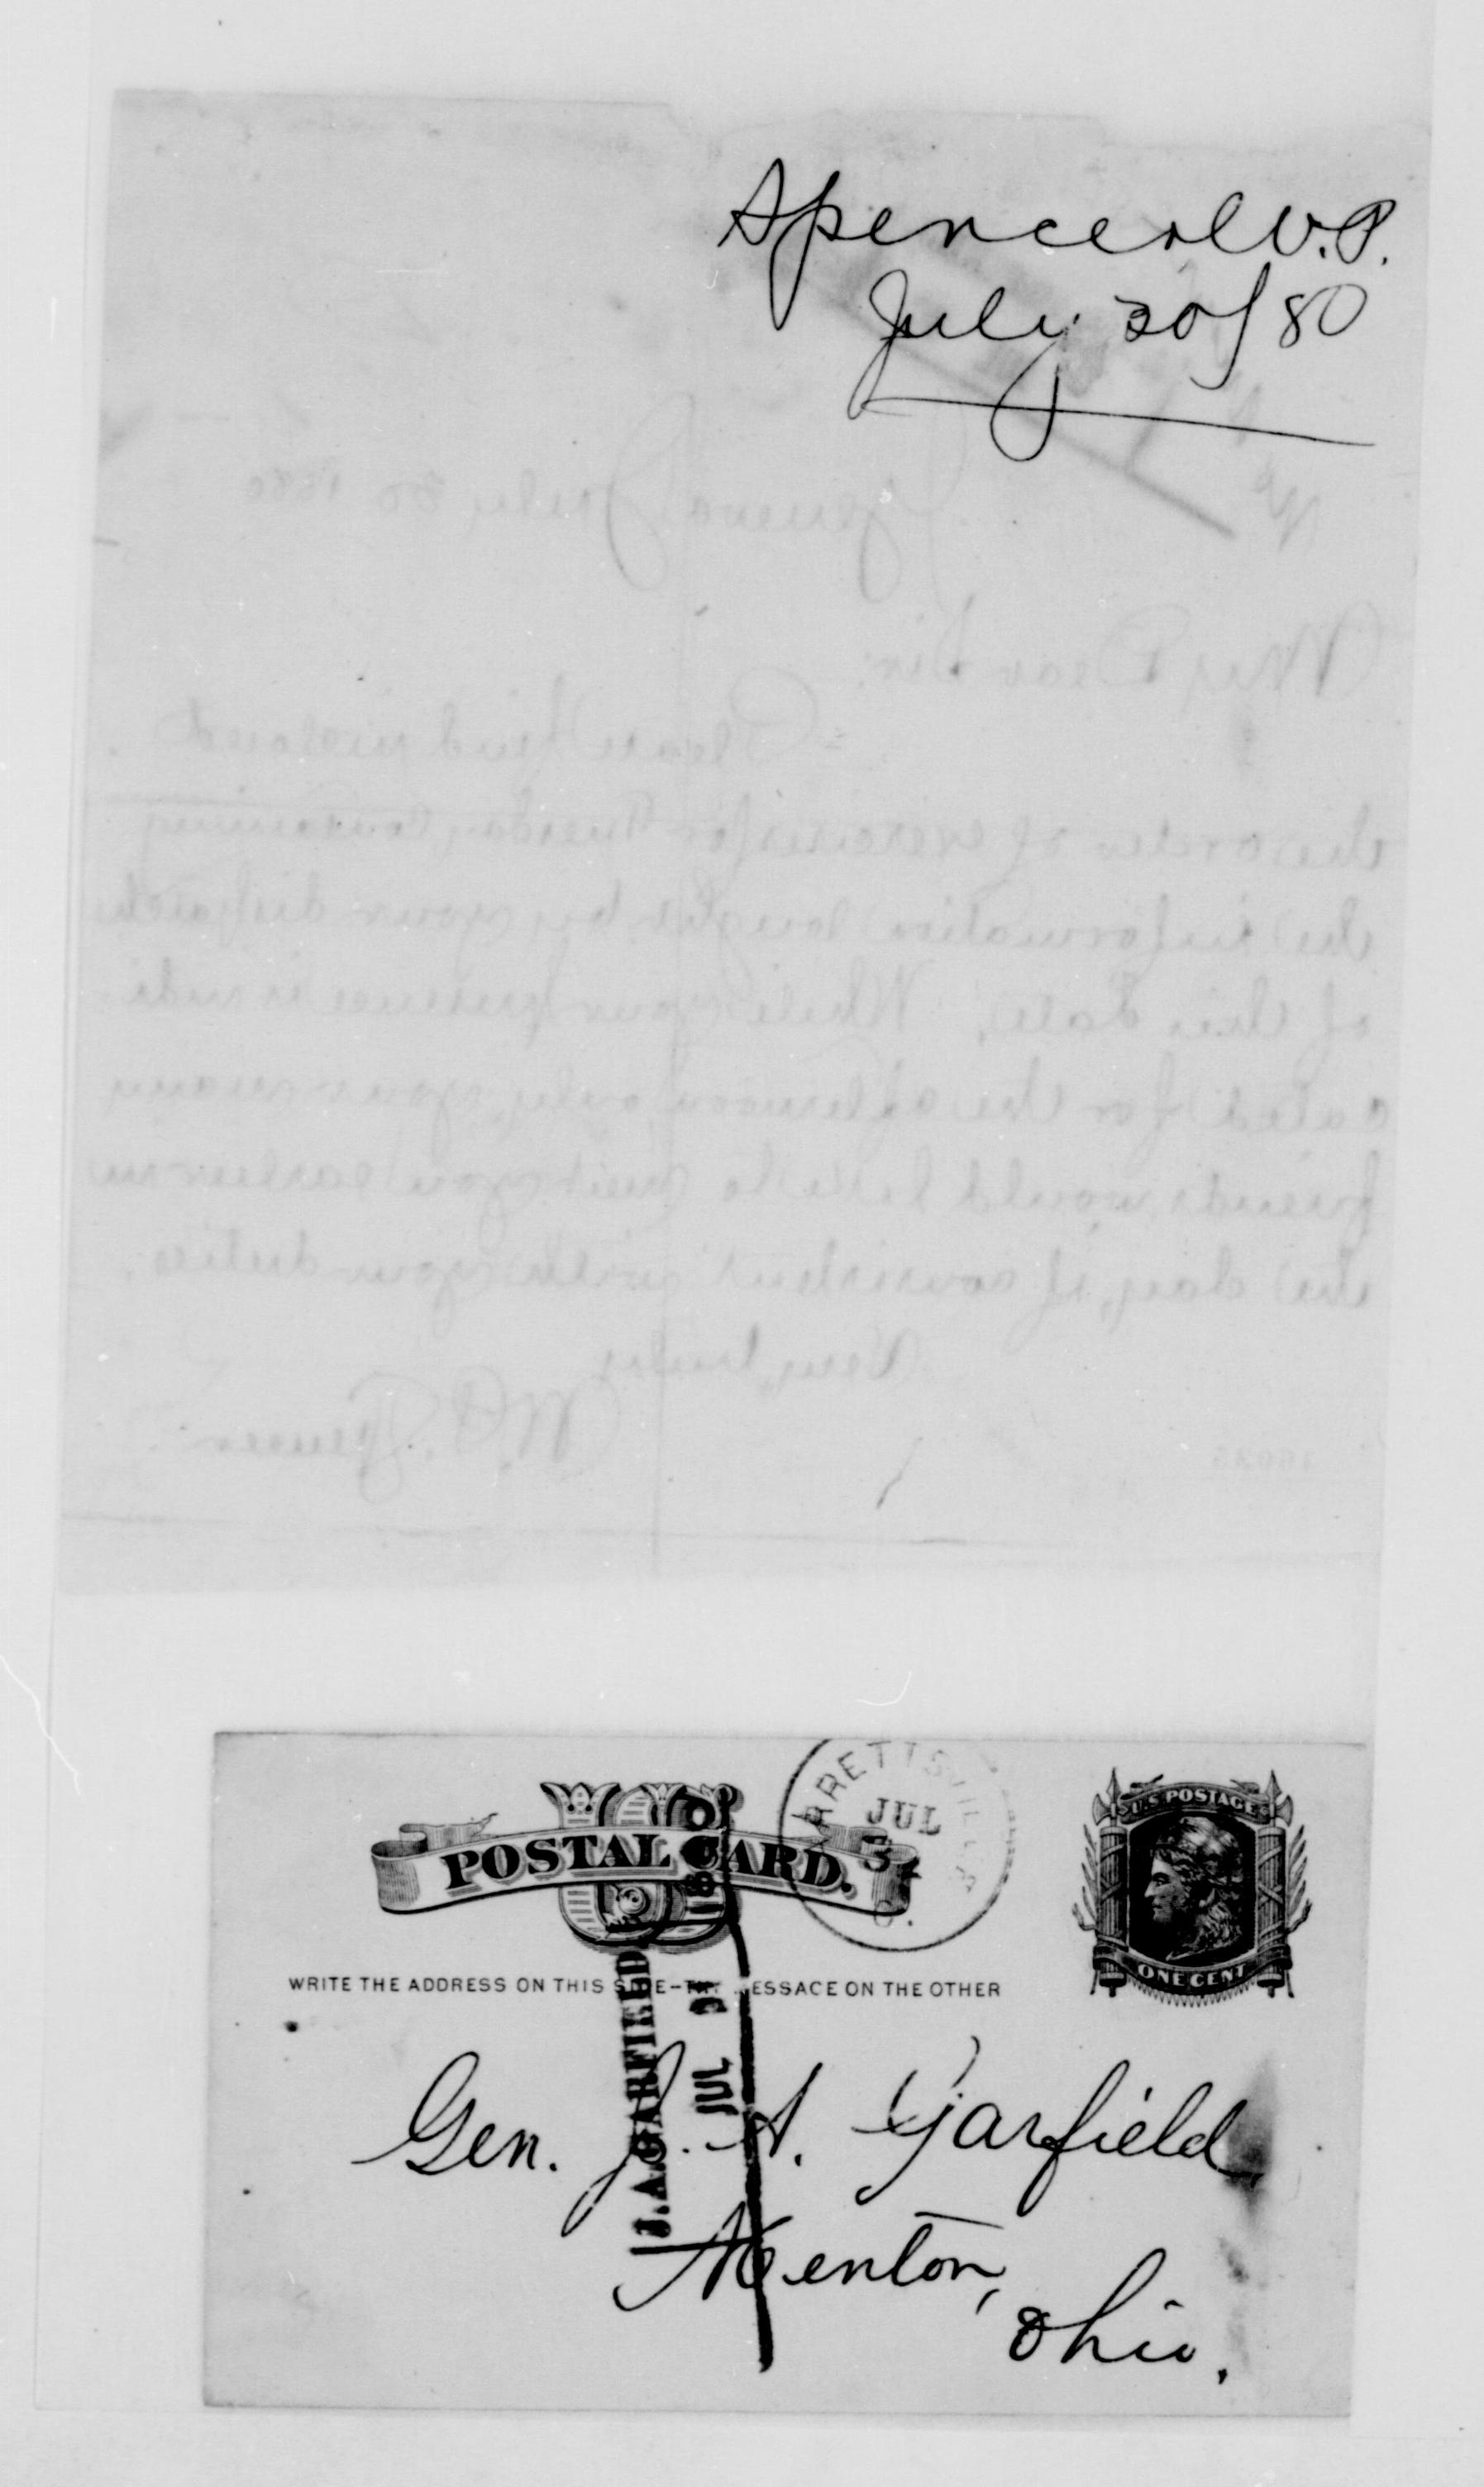 Spencer W.P.
July 30/80
Geneva July 30 1880
My Dear Sir:
Please find enclosed
the order of exercises for Tuesday containing
the information sought by your dispatch
of this date. While your presence is indi-
cated for the afternoon only, your many
friends would like to meet you earlier in
the day, if consistent with your duties.
Very truly
W.P. Spencer
U.S. POSTAGE
POSTAL CARD.
ONE CENT
GARRETTSVILLE
JUL
31
O.
WRITE THE ADDRESS ON THIS SIDE-THE MESSAGE ON THE OTHER
J.A. GARFIELD
JUL 31 1880
Gen. J. A. Garfield,
Mentor,
Ohio.